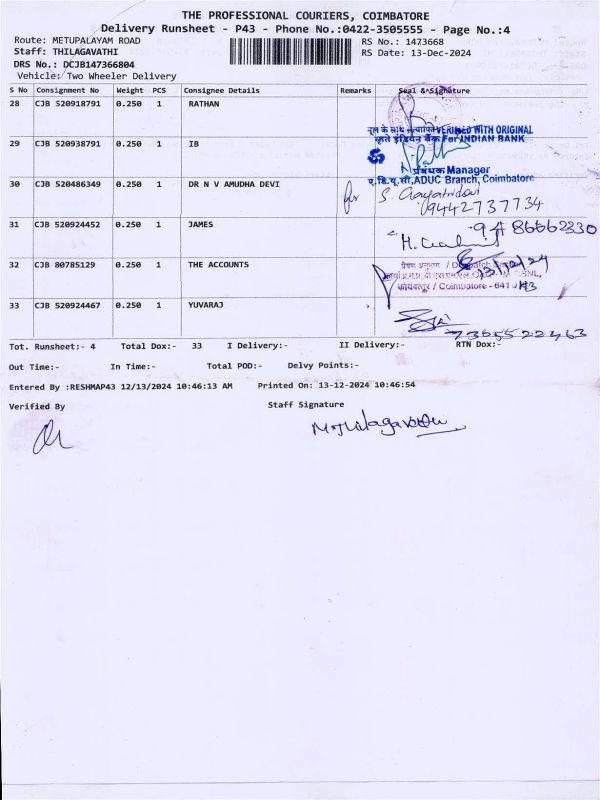 THE PROFESSIONAL COURIERS, COIMBATORE
Delivery Runsheet - P43 - Phone No.:0422-3505555 - Page No.:4
Route: METUPALAYAM ROAD RS No.: 1473668
Staff: THILAGAVATHI RS Date: 13-Dec-2024
DRS No.: DCJB147366804
Vehicle: Two Wheeler Delivery
S No Consignment No Weight PCS Consignee Details Remarks Seal & Signature
28 CJB 520918791 0.250 1 RATHAN
VERIFIED WITH ORIGINAL
29 CJB 520938791 0.250 1 IB
For INDIAN BANK
प्रबंधक Manager
ए.डि.यू.सी, ADUC Branch, Coimbatore
30 CJB 520486349 0.250 1 DR N V AMUDHA DEVI for S. Gayatridevi
9442737734
31 CJB 520924452 0.250 1 JAMES
32 CJB 80785129 0.250 1 THE ACCOUNTS 13/12/24
कोयंबत्तूर / Coimbatore - 641 043
33 CJB 520924467 0.250 1 YUVARAJ
7365522463
Tot. Runsheet:- 4 Total Dox:- 33 I Delivery:- II Delivery:- RTN Dox:-
Out Time:- In Time:- Total POD:- Delvy Points:-
Entered By :RESHMAP43 12/13/2024 10:46:13 AM Printed On: 13-12-2024 10:46:54
Verified By Staff Signature
M.Thilagavathi